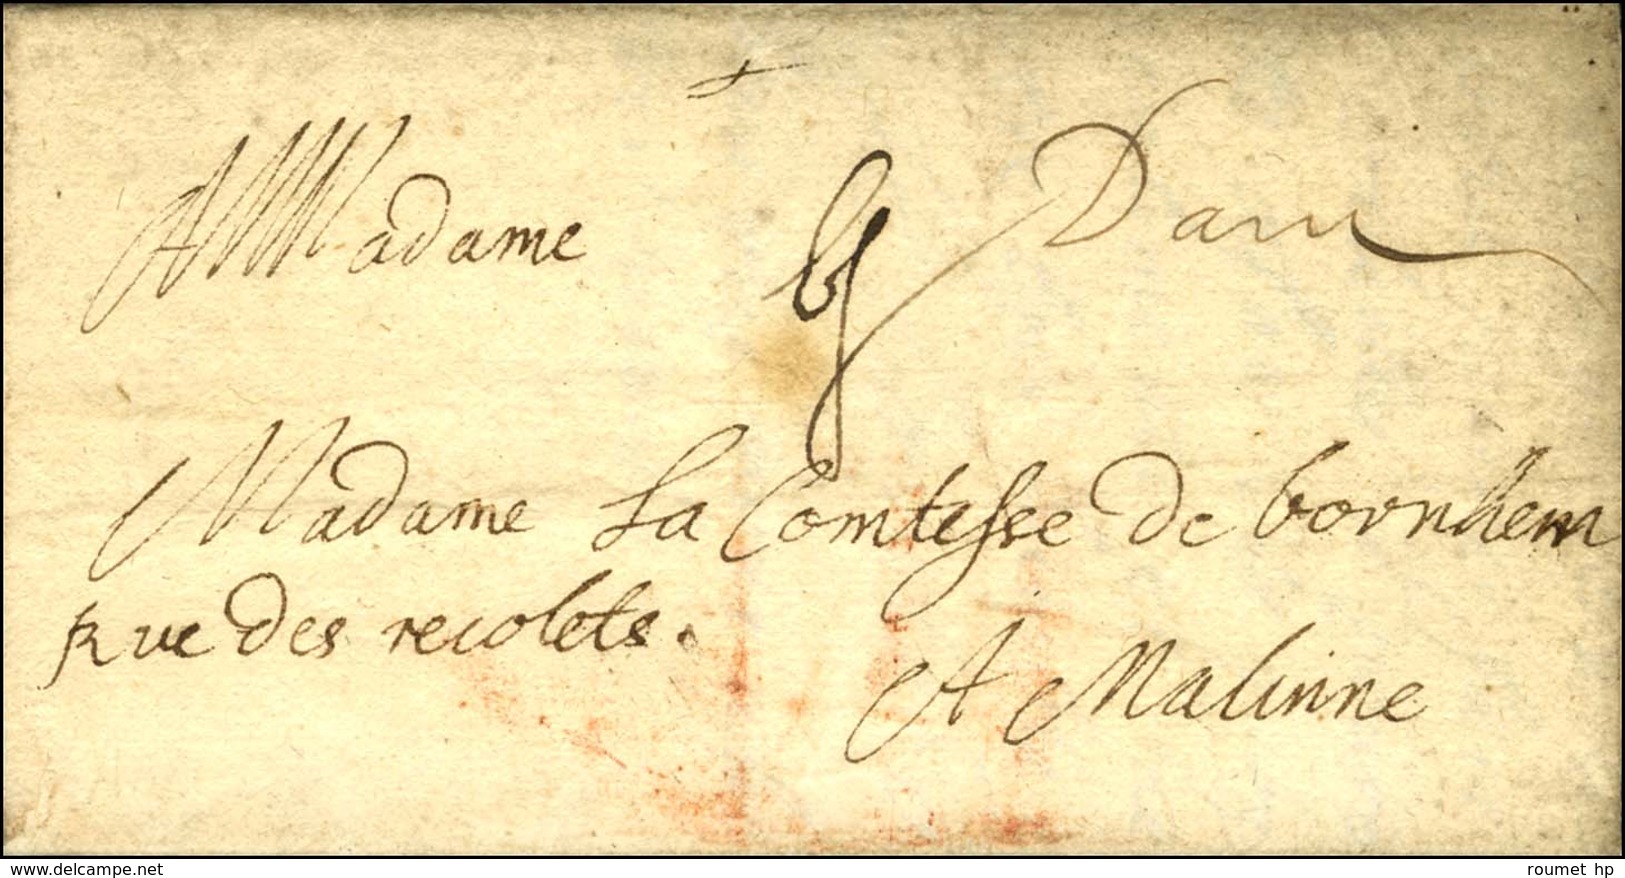 A Madame
Madame La Comtesse de bornhem
Rue des recolets.
A Malinne
© delcampe.net
roumet hp